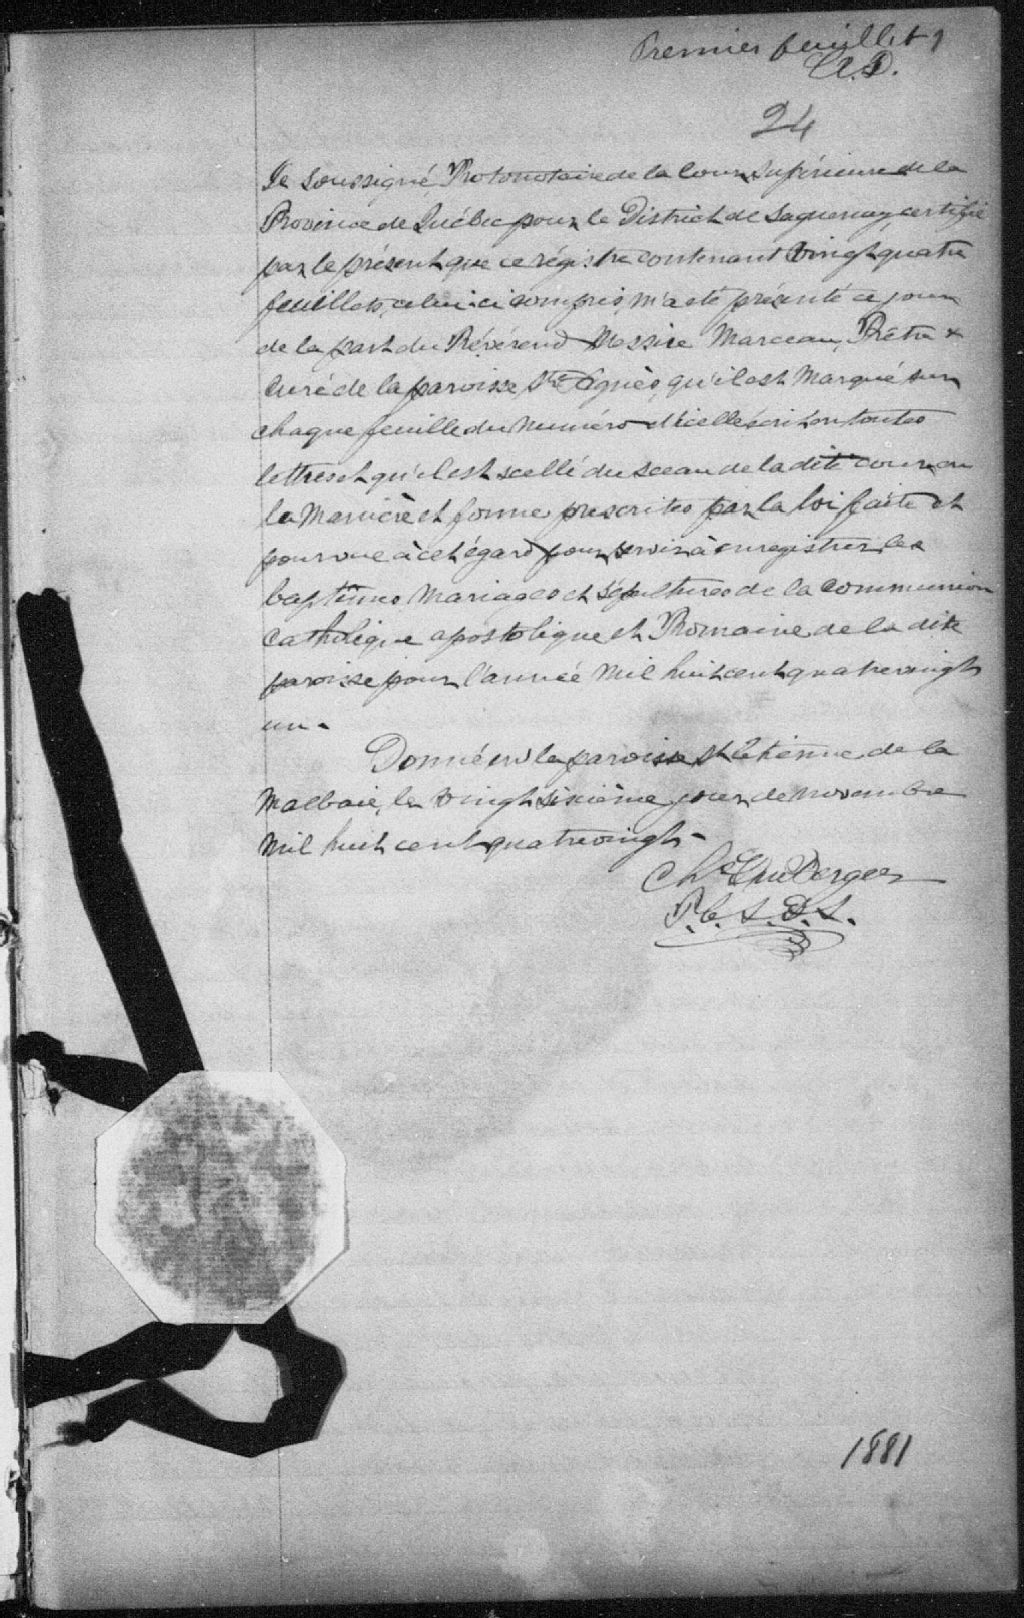 Premier feuillet
24
Je soussigné, Protonotaire de la Cour Supérieure de la
Province de Québec pour le District de Saguenay, certifie
par le présent que ce régistre contenant vingt quatre
feuillets, celui ci compris, m'a été présenté ce jour
de la part du Révérend Messire Marceau, Prêtre &
Curé de la paroisse Ste Agnès, qu'il est Marqué sur
chaque feuille du Numéro d'icelle écrit en toutes
lettres et qu'il est scellé du sceau de la dite cour en
la Manière et forme prescrites par la loi faite et
pourvue à cet égard pour servir à enregistrer les
baptêmes Mariages et Sépultures de la Communion
Catholique apostolique et Romaine de la dite
paroisse pour l'année Mil huit cent quatrevingt
un.
Donné en la paroisse St Etienne de la
Malbaie, le vingt sixième jour de novembre
Mil huit cent quatrevingt -
Chs DuBerger
P.C.S.D.S.
1881